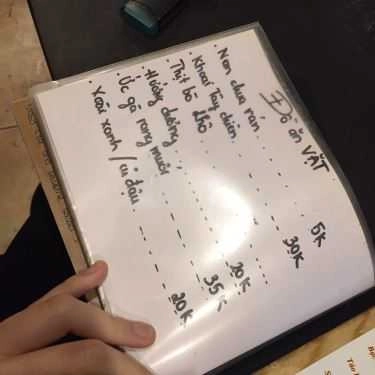 Đồ ăn VẶT
. Nem chua rán ........ 5K
. Khoai Tây chiên ....... 30K
. Thịt bò khô ........
. Hướng dương ....... 20K
. Ức gà rang muối ....... 35K
. Xoài xanh / củ đậu ....... 20K